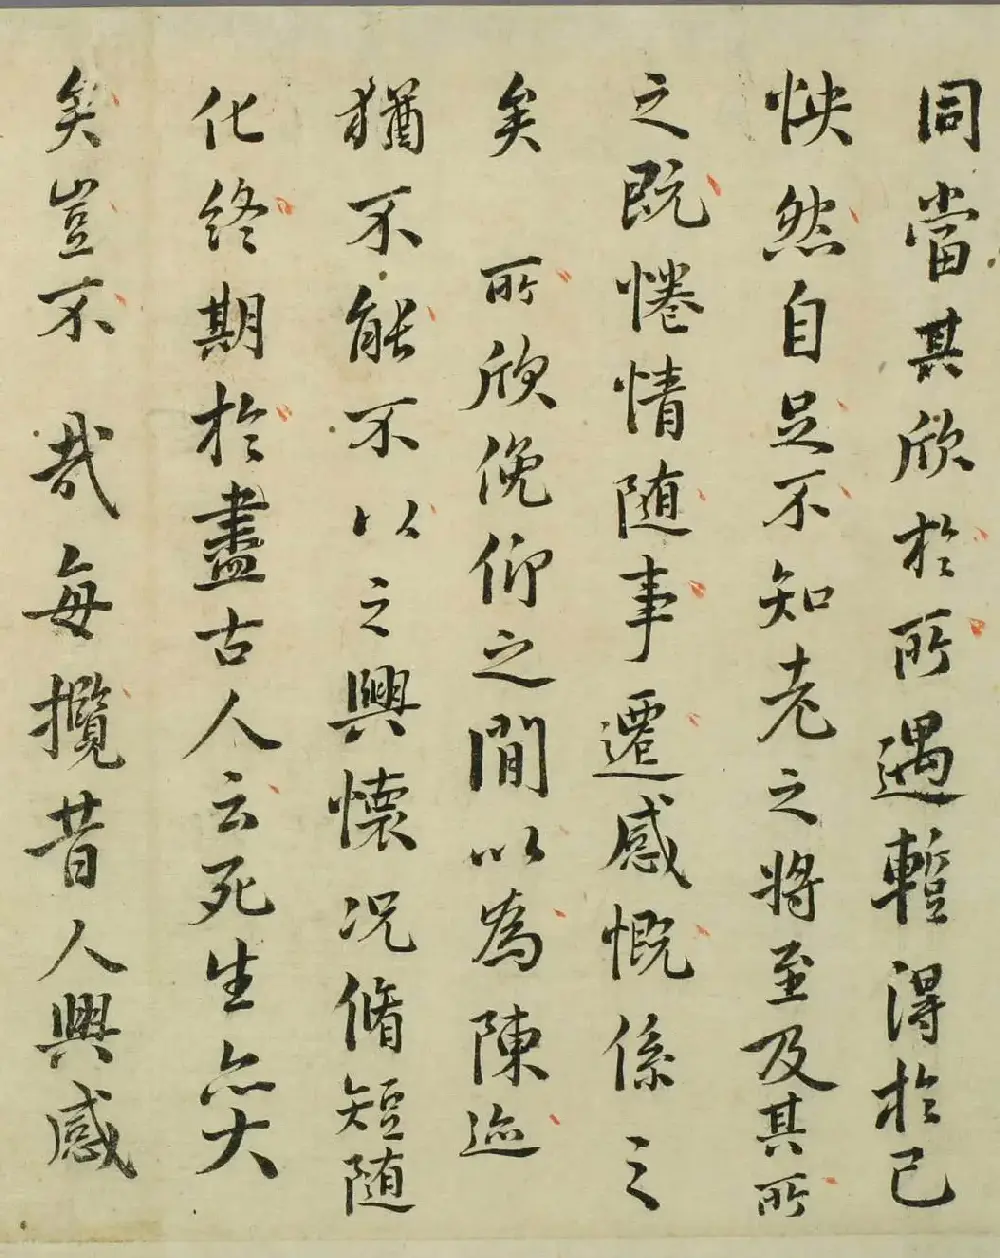 同當其欣於所遇暫得於己
怏然自足不知老之將至及其所
之既惓情随事遷感慨係之
矣所欣俛仰之間以為陳迹
猶不能不以之興懷况脩短随
化終期於盡古人云死生亦大
矣豈不哉每攬昔人興感